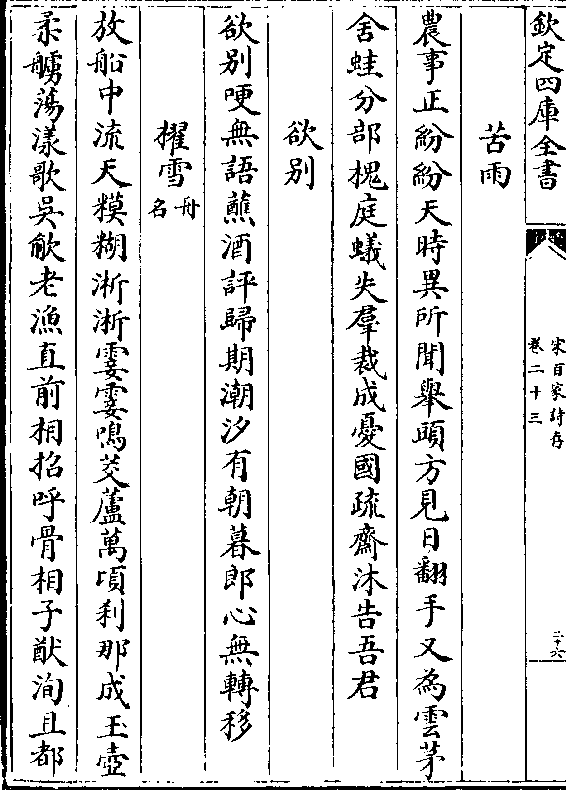 欽定四庫全書
宋百家詩存
卷二十三
二十六
苦雨
農事正紛紛天時異所聞舉頭方見日翻手又為雲茅
舍蛙分部槐庭蟻失羣裁成憂國疏齋沐告吾君
欲別
欲別哽無語蘸酒評歸期潮汐有朝暮郎心無轉移
擢雪舟名
放船中流天糢糊淅淅霎霎鳴茭蘆萬頃刹那成玉壺
柔艣蕩漾歌吳歈老漁直前相招呼骨相子猷洵且都